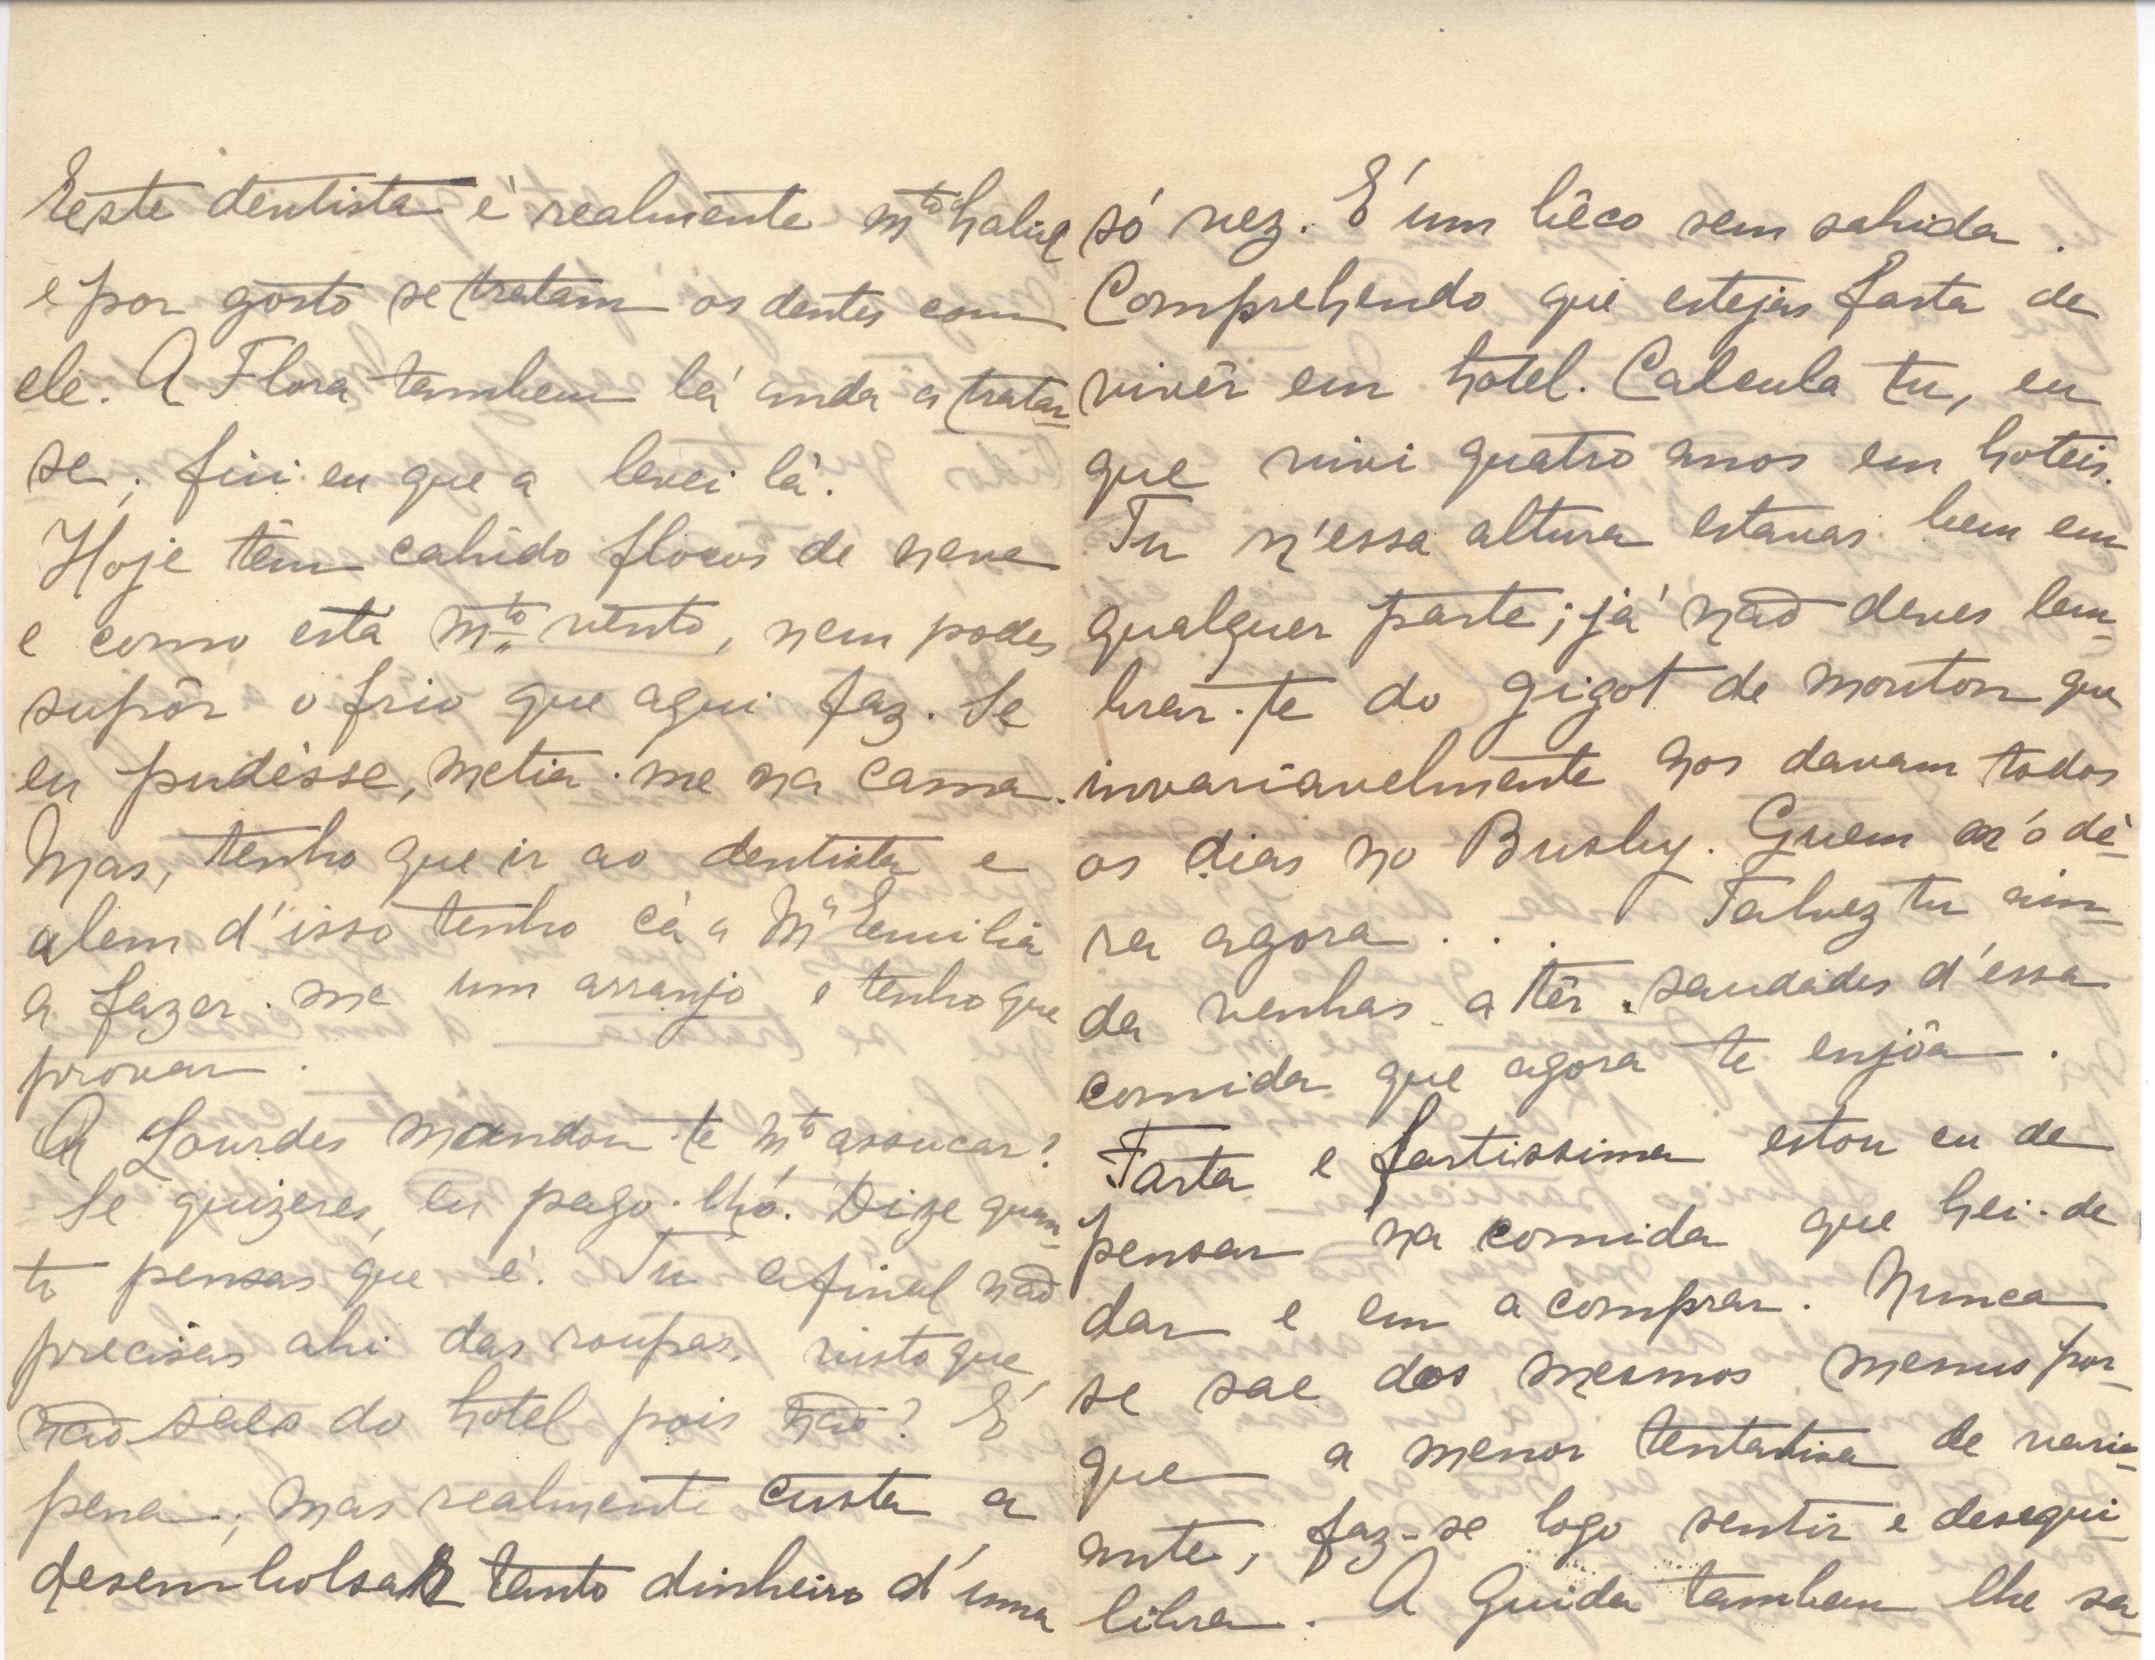 Este dentista é realmente mto habil
e por gosto se tratam os dentes com
ele. A Flora tambem lá anda a tratar-
se; fui eu que a levei lá.
Hoje têm cahido flocos de neve
e como está mto vento, nem podes
supôr o frio que aqui faz. Se
eu pudésse, metia-me na cama.
Mas, tenho que ir ao dentista e
alem d'isso tenho cá a Ma Emilia
a fazer-me um arranjo e tenho que
provar.
A Lourdes mandou-te mto assucar?
Se quizeres, eu pago-lhó. Dize quan-
to pensas que é. Tu afinal não
precisas ahi das roupas, visto que
não saes do hotel pois não? É
pena; mas realmente custa a
desembolsar tanto dinheiro d'uma
só vez. É um bêco sem sahida.
Comprehendo que estejas farta de
vivêr em hotel. Calcula tu, eu
que vivi quatro anos em hoteis.
Tu n'essa altura estavas bem em
qualquer parte; já não deves lem-
brar-te do gigot de mouton que
invariavelmente nos davam todos
os dias no Busby. Quem m'o dé-
ra agora... Talvez tu ain-
da venhas a têr saudades d'essa
comida que agora te enjôa.
Farta e fartissima estou eu de
pensar na comida que hei-de
dar e em a comprar. Nunca
se sae dos mesmos menus por-
que a menor tentativa de vari-
ante, faz-se logo sentir e desequi-
libra. A Guida tambem lhe sa-